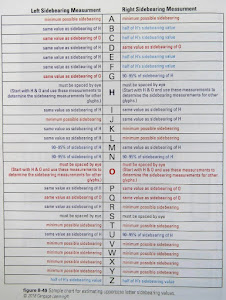 Left Sidebearing Measurment Right Sidebearing Measurment
minimum possible sidebearing A minimum possible sidebearing
same value as sidebearing of H B half of H's value sidebearing
same value as sidebearing of O C half of H's value sidebearing
same value as sidebearing of H D same value as sidebearing of O
same value as sidebearing of H E half of H's value sidebearing
same value as sidebearing of H F half of H's value sidebearing
same value as sidebearing of O G 90-95% of sidebearing of H
must be spaced by eye must be spaced by eye
(Start with H & O and use these measurements to H (Start with H & O and use these measurements to
determine the sidebearing measurements for other determine the sidebearing measurements for other
glyphs.) glyphs.)
same value as sidebearing of H I same value as sidebearing of H
minimum possible sidebearing J same value as sidebearing of H
same value as sidebearing of H K minimum possible sidebearing
same value as sidebearing of H L minimum possible sidebearing
90-95% of sidebearing of H M same value as sidebearing of H
90-95% of sidebearing of H N 90-95% of sidebearing of H
must be spaced by eye must be spaced by eye
(Start with H & O and use these measurements to O (Start with H & O and use these measurements to
determine the sidebearing measurements for other determine the sidebearing measurements for other
glyphs.) glyphs.)
same value as sidebearing of H P same value as sidebearing of O
same value as sidebearing of O Q same value as sidebearing of O
same value as sidebearing of H R minimum possible sidebearing
must be spaced by eye S must be spaced by eye
minimum possible sidebearing T minimum possible sidebearing
same value as sidebearing of H U
minimum possible sidebearing V minimum possible sidebearing
minimum possible sidebearing W minimum possible sidebearing
minimum possible sidebearing X minimum possible sidebearing
minimum possible sidebearing Y minimum possible sidebearing
half of H's value sidebearing Z half of H's value sidebearing
Sample chart for estimating uppercase letter sidebearing values.